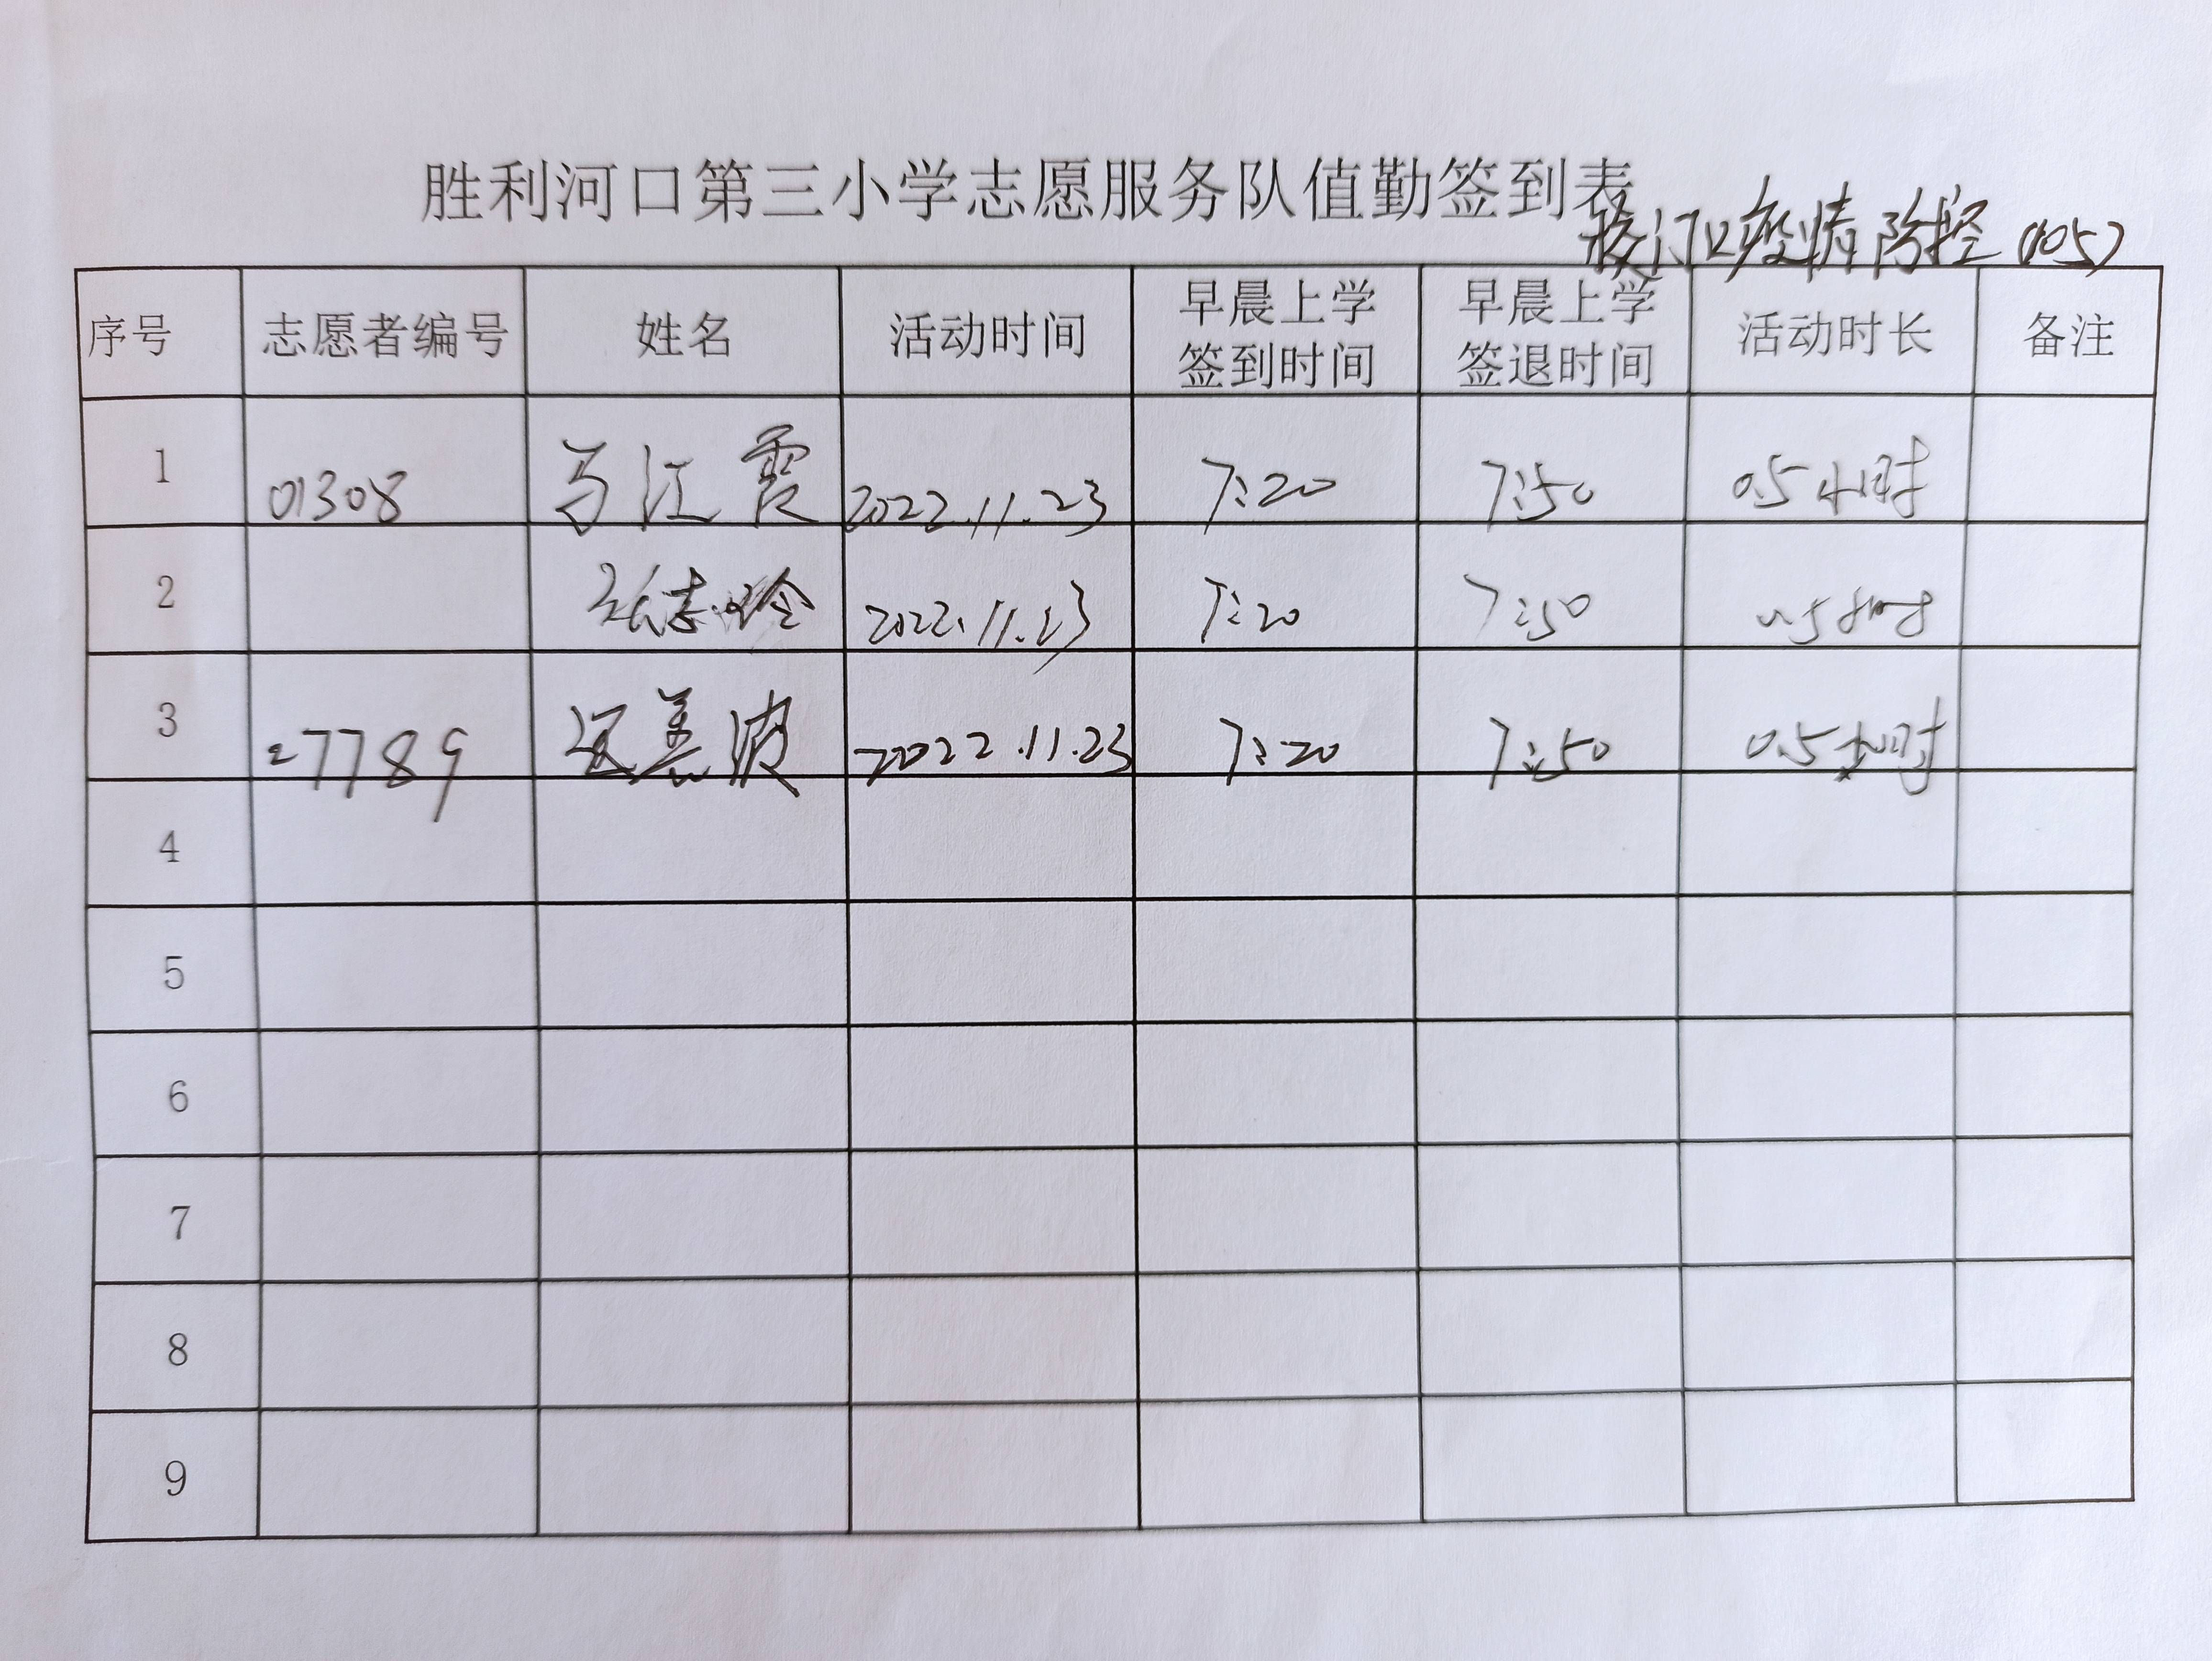 胜利河口第三小学志愿服务队值勤签到表
校门口疫情防控(105)
序号 志愿者编号 姓名 活动时间 早晨上学签到时间 早晨上学签退时间 活动时长 备注
1 01308 马江霞 2022.11.23 7:20 7:50 0.5小时
2 张志玲 2022.11.23 7:20 7:50 0.5小时
3 27789 美波 2022.11.23 7:20 7:50 0.5小时
4
5
6
7
8
9